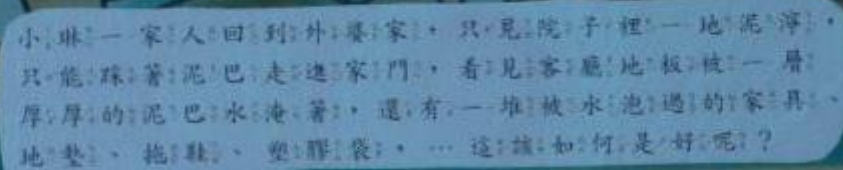 小琳一家人回到外婆家，只見院子裡一地泥濘，
只能踩著泥巴走進家門，看見客廳地板被一層
厚厚的泥巴水淹著，還有一堆被水泡過的家具、
地墊、拖鞋、塑膠袋，…這該如何是好呢？